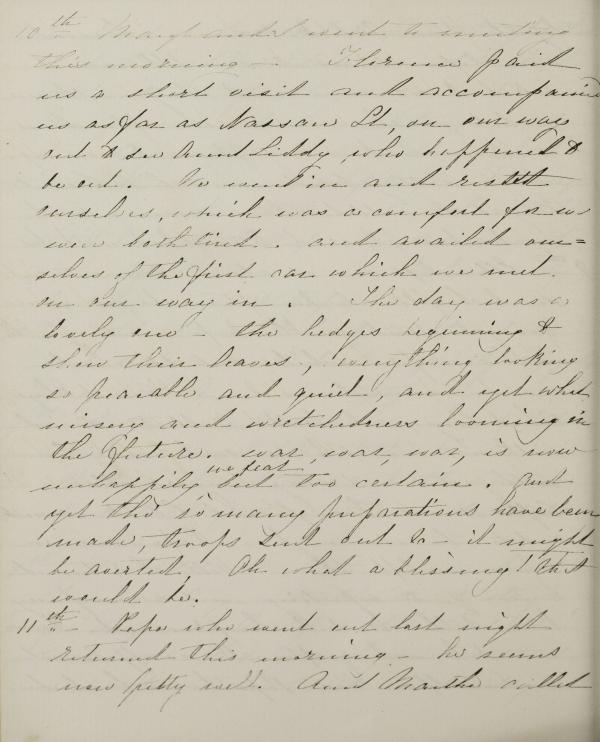 10th Mary and I went to meeting
this morning - Florence paid
us a short visit and accompanied
us as far as Nassau St, on our way
out to see Aunt Liddy, who happened to
be out. We went in and rested
ourselves, which was a comfort for we
were both tired. and availed our=
selves of the first car which we met
on our way in. The day was a
lovely one - the hedges beginning to
show their leaves, everything looking
so peacable and quiet, and yet what
misery and wretchedness looming in
the future. war, war, war, is now
we fear
unhappily but too certain. and
yet tho' so many preparations have been
made, troops sent out &c - it might
be averted, Oh what a blessing! that
would be.
11th - Papa who went out last night
returned this morning - he seems
now pretty well. Aunt Martha called